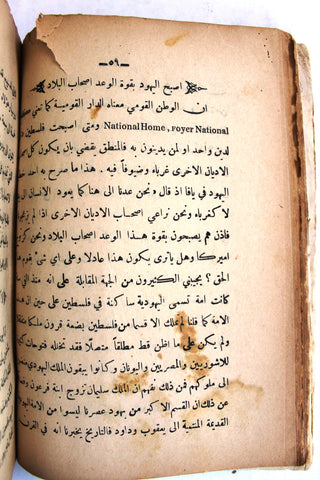 — ٥٩ —
اصبح اليهود بقوة الوعد اصحاب البلاد
ان الوطن القومي معناه الدار القومية كما
National Home, royer National ومتى اصبحت فلسطين
لدين واحد او لمن يدينون به فالمنطق يقضي بان يكون كل
الاديان الاخرى غرباء وضيوفاً فيه . هذا ما صرح به احد
اليهود في يافا اذ قال « ونحن عدنا الى هنا كما يعود الانسان الى
لا كغرباء ونحن نراعي اصحاب الاديان الاخرى اذا
فاذن هم يصبحون بقوة هذا الوعد اصحاب البلاد ونحن
اميركا وهل يا ترى يكون هذا عادلا وعلى اي شيء
الحق ؟ يجيبني الكثيرون من الجهة المقابلة على انه منذ
كانت امة تسمى اليهودية ساكنة في فلسطين على حين ان
الامة لما كانت تملك الا قسما من فلسطين بضعة قرون
ولم يكن على ما اظن قط مطلقاً متصلاً فقد تخلله فتوحات
للاشوريين والمصريين واليونان وكانوا يبقون الملك اليهودي
الى ملوكهم فمن ذلك نفهم ان الملك سليمان تزوج ابنة فرعون
عن ذلك ان القسم الاكبر من يهود عصرنا ليسوا من الامة
القديمة المنتمية الى يعقوب وداود فالتاريخ يخبرنا انه في القرن